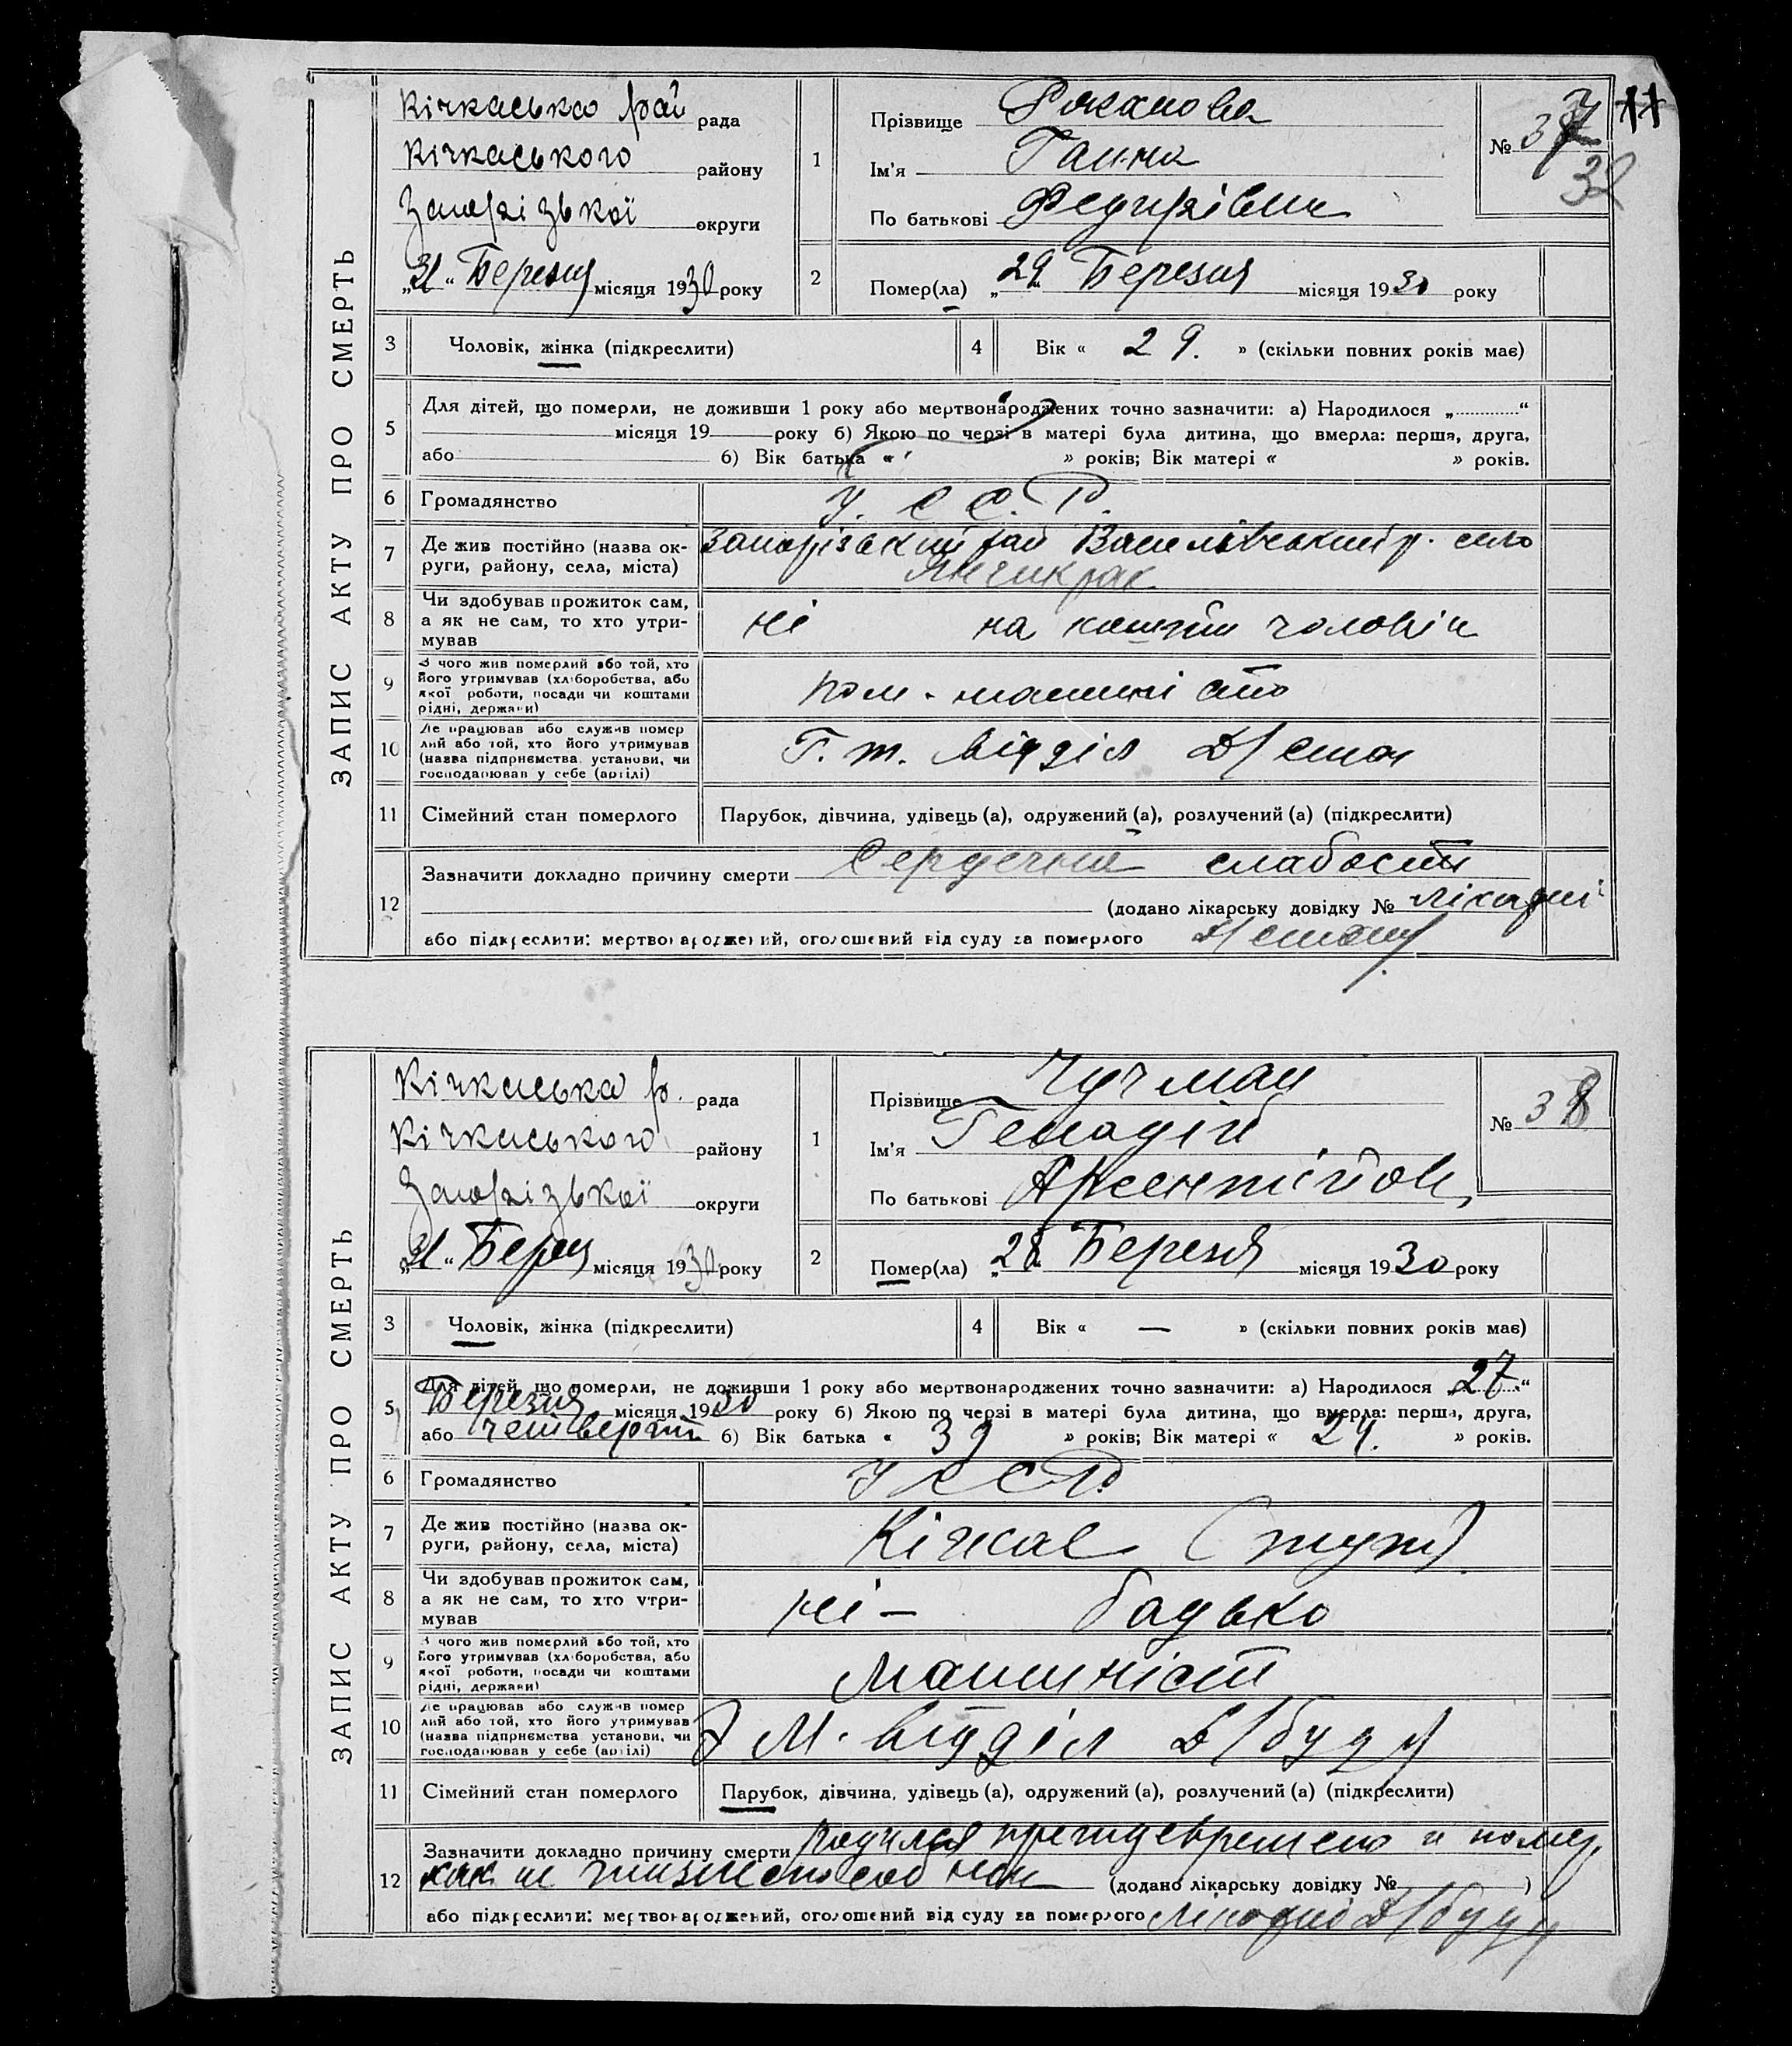 ЗАПИС АКТУ ПРО СМЕРТЬ
Кічкаська рай рада
Кічкаського району
Запорізької округи
„31“ Березня місяця 1930 року
1
Прізвище
Ім'я Ганна
По батькові Федорівна
№ 37
38
2
Помер(ла) „29“ Березня місяця 1930 року
3 Чоловік, жінка (підкреслити)
4 Вік « 29. » (скільки повних років має)
5 Для дітей, що померли, не доживши 1 року або мертвонароджених точно зазначити: а) Народилося „ “
місяця 19 року б) Якою по черзі в матері була дитина, що вмерла: перша, друга,
або б) Вік батька « » років; Вік матері « » років.
6 Громадянство У. С. С. Р.
7 Де жив постійно (назва округи, району, села, міста) Запорізький рай Василівський р. село
Янчикрак
8 Чи здобував прожиток сам, а як не сам, то хто утримував ні на кошти чоловіка
9 З чого жив померлий або той, хто його утримував (хліборобства, або якої роботи, посади чи коштами рідні, держави) пом. машиніста
10 Де працював або служив померлий або той, хто його утримував (назва підприємства, установи, чи господарював у себе (артілі) Г. т. відділ
11 Сімейний стан померлого Парубок, дівчина, удівець (а), одружений (а), розлучений (а) (підкреслити)
12 Зазначити докладно причину смерти Сердечна слабость
(додано лікарську довідку №
або підкреслити: мертвонароджений, оголошений від суду за померлого
ЗАПИС АКТУ ПРО СМЕРТЬ
Кічкаська р. рада
Кічкаського району
Запорізької округи
„31“ Берез місяця 1930 року
1
Прізвище Чучман
Ім'я Генадій
По батькові Арсентійов
№ 38
2
Помер(ла) „28“ Березня місяця 1930 року
3 Чоловік, жінка (підкреслити)
4 Вік « — » (скільки повних років має)
5 Для дітей, що померли, не доживши 1 року або мертвонароджених точно зазначити: а) Народилося „27“
Березня місяця 1930 року б) Якою по черзі в матері була дитина, що вмерла: перша, друга,
або четверта б) Вік батька « 39 » років; Вік матері « 24. » років.
6 Громадянство УССР.
7 Де жив постійно (назва округи, району, села, міста) Кічкас (тут)
8 Чи здобував прожиток сам, а як не сам, то хто утримував ні — батько
9 З чого жив померлий або той, хто його утримував (хліборобства, або якої роботи, посади чи коштами рідні, держави) машиніст
10 Де працював або служив померлий або той, хто його утримував (назва підприємства, установи, чи господарював у себе (артілі) М. відділ Д/буду
11 Сімейний стан померлого Парубок, дівчина, удівець (а), одружений (а), розлучений (а) (підкреслити)
12 Зазначити докладно причину смерти родился преждевременно и помер,
как не жизнеспособный (додано лікарську довідку № )
або підкреслити: мертвонароджений, оголошений від суду за померлого Лікарні Д/буду